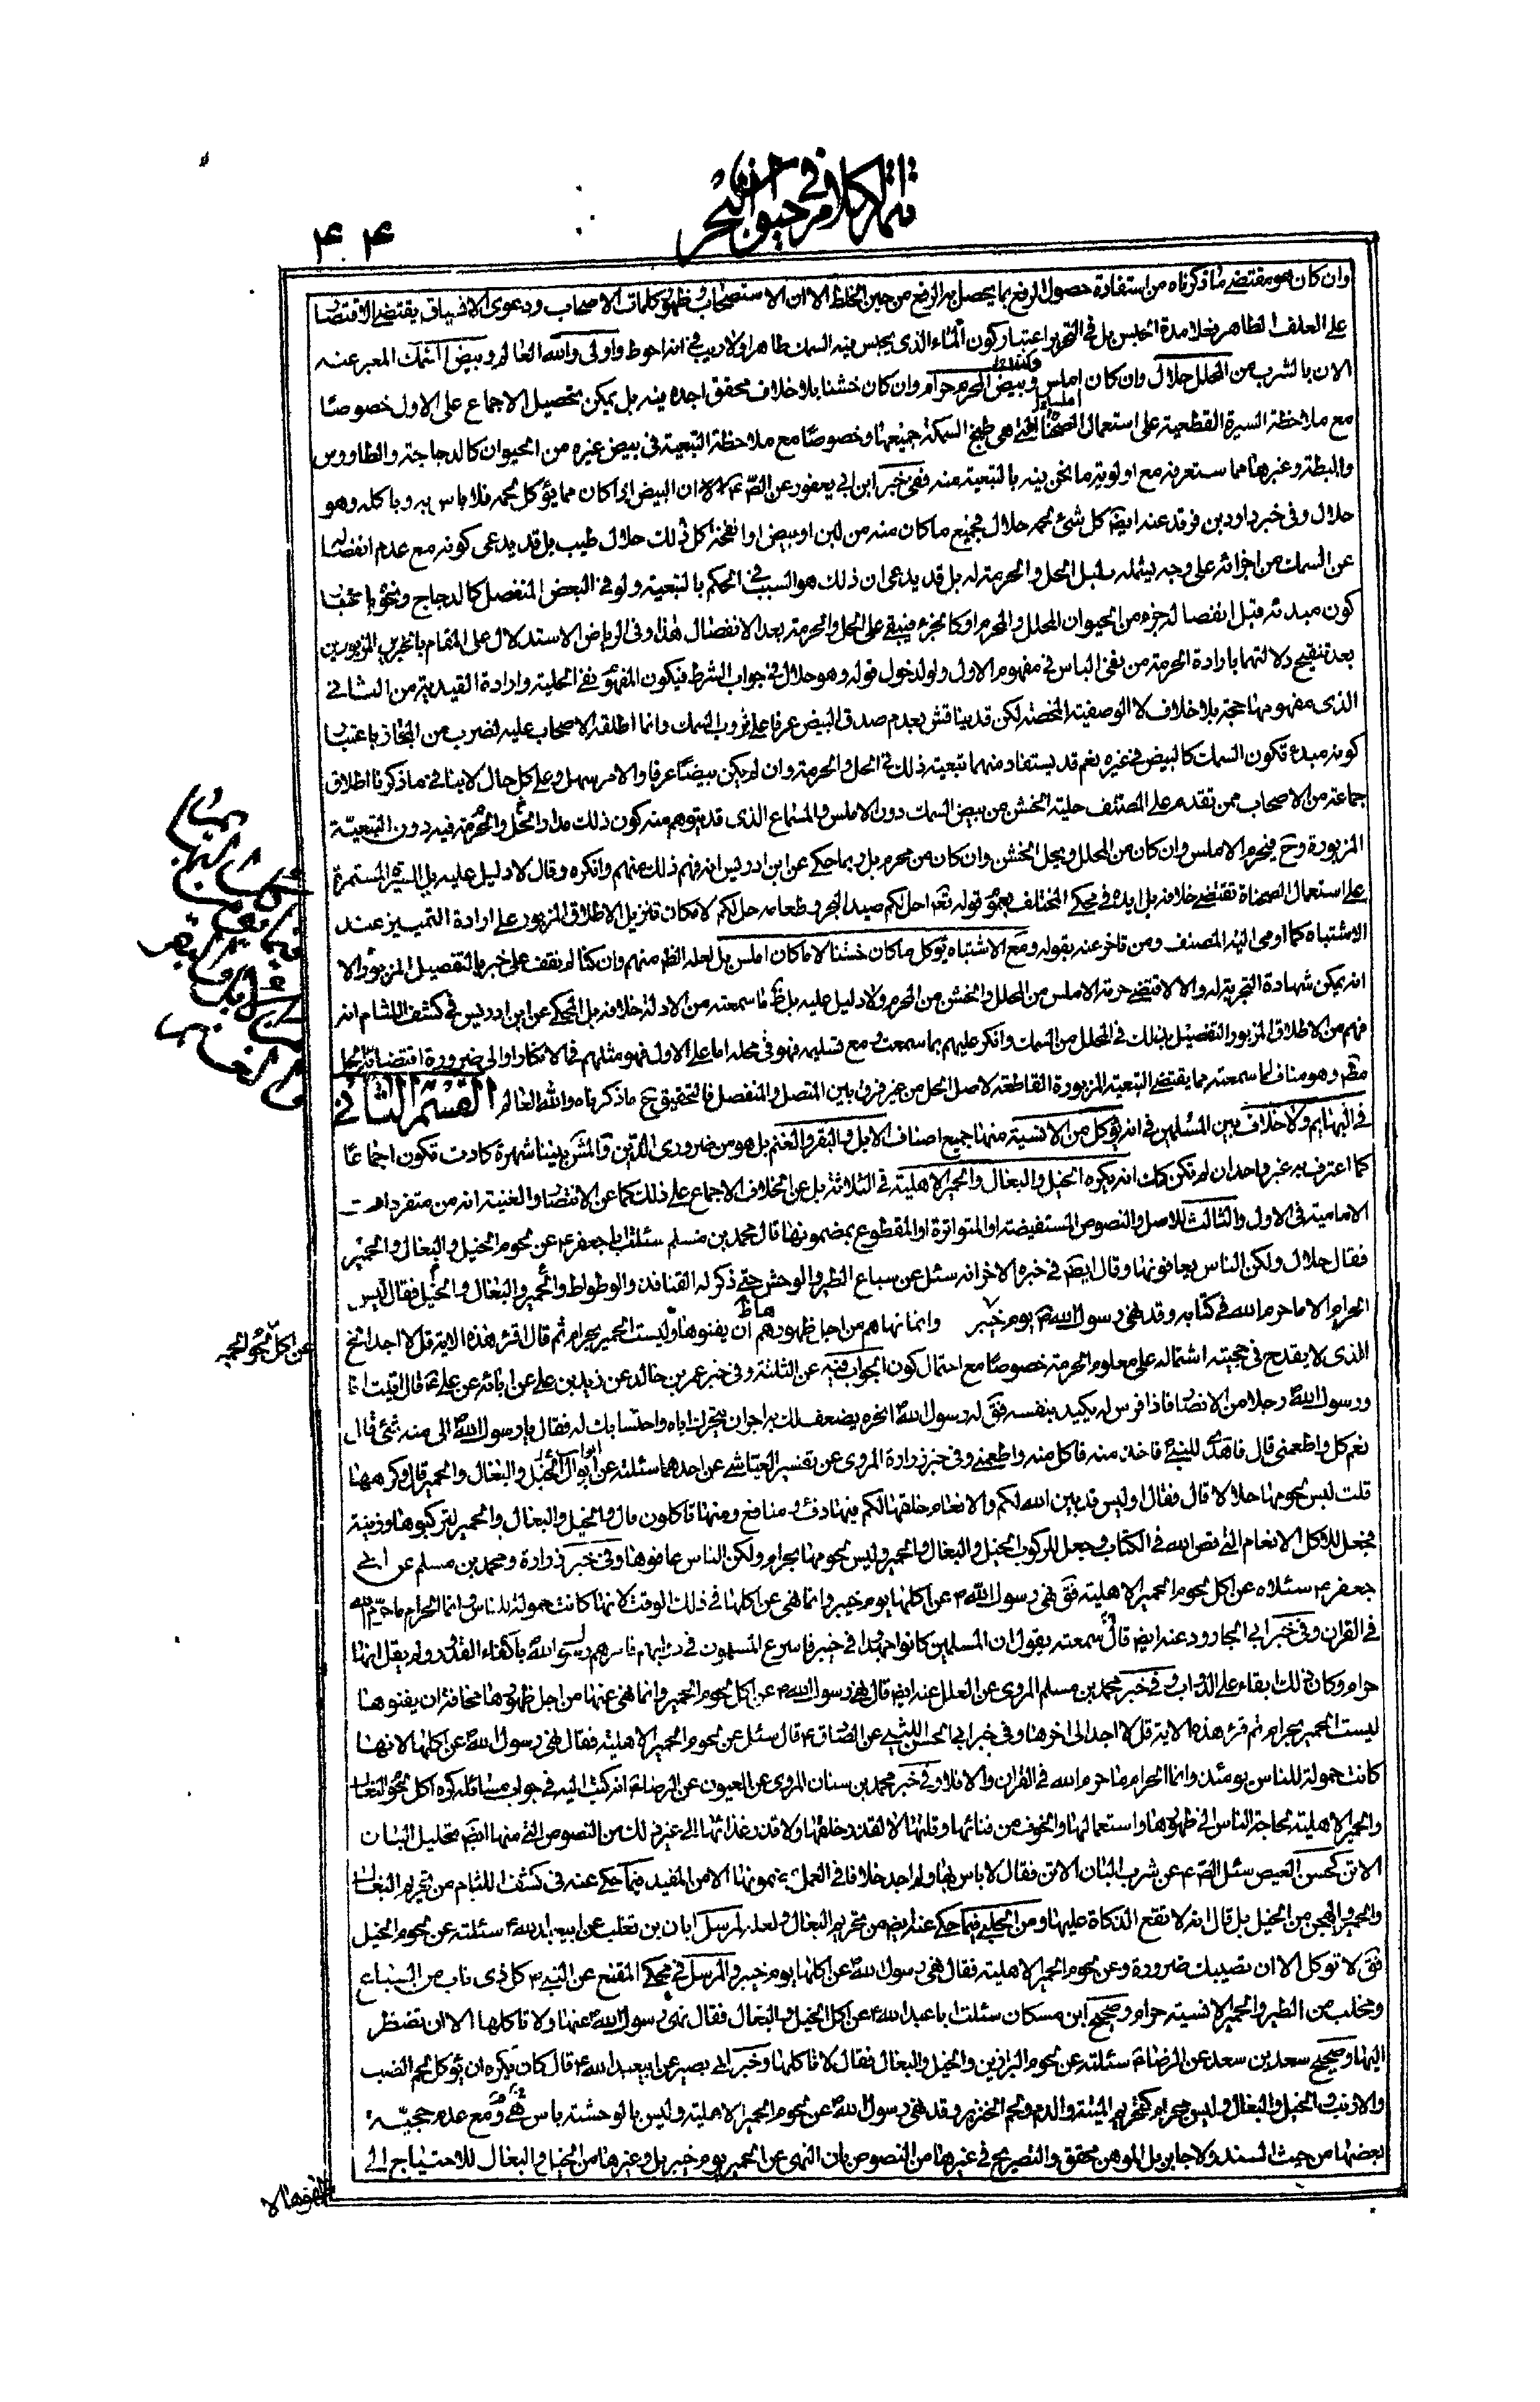 تتمة الكلام في حيوان البحر
۴۰۴
وان كان هو مقتضى ما ذكرناه من استفادة حصول الرفع بما يحصل به الرفع من حين الخلط الا ان الاستصحاب وظهور كلمات الاصحاب ودعوى الانسياق يقتضى الاقتصار
على العلف الطاهر فعلا مدة الحبس بل في التحرير اعتبار كون الماء الذى يحبس فيه السمك طاهرا ولا ريب في انه احوط واولى والله العالم وبيض السمك المعبر عنه
الان بالثرب من المحلل حلال وان كان املس وبيض المحرم حرام وان كان خشنا بلا خلاف محقق اجده فيه بل يمكن تحصيل الاجماع على الاول خصوصا
مع ملاحظة السيرة القطعية على استعمال الصحناة التى هى طبخ السمكة جميعها وخصوصا مع ملاحظة التبعية في بيض غيره من الحيوان كالدجاجة والطاووس
والبطة وغيرها مما ستعرفه مع اولوية ما نحن فيه بالتبعية منه ففى خبر ابن ابي يعفور عن الصّ ان البيض اذا كان مما يؤكل لحمه فلا باس به وباكله وهو
حلال وفى خبر داود بن فرقد عنه ايض كل شئ لحمه حلال فجميع ما كان منه من لبن او بيض او انفحة كل ذلك حلال طيب بل قد يدعى كونه مع عدم انفصاله
عن السمك من اجزائه على وجه يشمله دليل الحل والحرمة له بل قد يدعى ان ذلك هو السبب في الحكم بالتبعية ولو في البعض المنفصل كالدجاج ونحوه باعتبار
كون مبدئه قبل انفصاله جزء من الحيوان المحلل والمحرم او كالجزء فيبقى على الحل والحرمة بعد الانفصال هذا وفى الرياض الاستدلال على المقام بالخبرين المزبورين
بعد تنقيح دلالتهما بارادة الحرمة من نفى الباس في مفهوم الاول ولو لدخول قوله وهو حلال في جواب الشرط فيكون المفهوم نفى الحلية وارادة القيدية من الثانى
الذى مفهومها حجة بلا خلاف لا الوصفية المحضة لكن قد يناقش بعدم صدق البيض عرفا على ثروب السمك وانما اطلقه الاصحاب عليه لضرب من المجاز باعتبار
كونه مبدء تكون السمك كالبيض في غيره نعم قد يستفاد منهما تبعية ذلك في الحل والحرمة وان لم يكن بيضا عرفا والامر سهل وعلى كل حال لا ينافى ما ذكرنا اطلاق
جماعة من الاصحاب ممن تقدم على المصنف حلية الخشن من بيض السمك دون الاملس والمنماع الذى قد يتوهم منه كون ذلك مدار الحل والحرمة فيه دون التبعية
المزبورة وح فيحرم الاملس وان كان من المحلل ويحل الخشن وان كان من محرم بل ربما حكى عن ابن ادريس انه فهم ذلك منهم وانكره وقال لا دليل عليه بل السيرة المستمرة
على استعمال الصحناة تقتضى خلافه بل ايده في محكى المختلف بعموم قوله تعم احل لكم صيد البحر وطعامه حل لكم لامكان تنزيل الاطلاق المزبور على ارادة التمييز عند
الاشتباه كما اومى اليه المصنف ومن تاخر عنه بقوله ومع الاشتباه يؤكل ما كان خشنا لا ما كان املس بل لعله الظ منهم وان كنا لم نقف على خبر بالتفصيل المزبور الا
انه يمكن شهادة التجربة له والا لاقتضى حرمة الاملس من المحلل والخشن من المحرم ولا دليل عليه بل ظ ما سمعته من الادلة خلافه بل المحكى عن ابن ادريس في كشف اللثام انه
فهم من الاطلاق المزبور التفصيل بذلك في المحلل من السمك وانكر عليهم بما سمعت ومع تسليمه فهو في محله اما على الاول فهو مثلهم في الانكار او الى ضرورة اقتضائه الحل
مطم وهو مناف لما سمعته مما يقتضى التبعية المزبورة القاطعة لاصل الحل من غير فرق بين المتصل والمنفصل فالتحقيق ح ما ذكرناه والله العالم القسم الثانى
في البهايم ولا خلاف بين المسلمين في انه يؤكل من الانسية منها جميع اصناف الابل والبقر والغنم بل هو من ضرورى الدين والمش بيننا شهرة كادت تكون اجماعا
كما اعترف به غير واحد ان لم تكن كك انه يكره الخيل والبغال والحمير الاهلية في الثلاثة بل عن الخلاف الاجماع على ذلك كما عن الانتصار والغنية انه من متفردات
الامامية في الاول والثالث للاصل والنصوص المستفيضة او المتواترة او المقطوع بمضمونها قال محمد بن مسلم سئلت ابا جعفر ع عن لحوم الخيل والبغال والحمير
فقال حلال ولكن الناس يعافونها وقال ايضا في خبره الاخر انه سئل عن سباع الطير والوحش حتى ذكر له القنافذ والوطواط والحمير والبغال والخيل فقال ليس
الحرام الا ما حرم الله في كتابه وقد نهى رسول الله ص يوم خيبر وانما نهاهم من اجل ظهورهم ان يفنوها وليست الحمير بحرام ثم قال اقرء هذه الاية قل لا اجد الخ
عن اكل لحوم الحمير
الذى لا يقدح في حجيته اشتماله على معلوم الحرمة خصوصا مع احتمال كون الجواب فيه عن الثلثة وفى خبر عمر بن خالد عن زيد بن على عن ابائه عن على ع قال اتيت انا
ورسول الله رجلا من الانصار فاذا فرس له يكيد بنفسه فق له رسول الله انحره يضعف لك به اجران بنحرك اياه واحتسابك له فقال يا رسول الله الى منه شئ قال
نعم كل واطعمنى قال فاهدى للنبى فخذا منه فاكل منه واطعمنى وفى خبر زرارة المروى عن تفسير العياشى عن احدهما سئلته عن ابوال الخيل والبغال والحمير قال فكرهها
قلت ليس لحومها حلالا قال فقال اوليس قد بين الله لكم والانعام خلقها لكم فيها دفء ومنافع ومنها تاكلون وقال والخيل والبغال والحمير لتركبوها وزينة
فجعل للاكل الانعام التى قص الله في الكتاب وجعل للركوب الخيل والبغال والحمير وليس لحومها بحرام ولكن الناس عافوها وفى خبر زرارة ومحمد بن مسلم عن ابى
جعفر ع سئلاه عن اكل لحوم الحمير الاهلية فق نهى رسول الله ص عن اكلها يوم خيبر وانما نهى عن اكلها في ذلك الوقت لانها كانت حمولة للناس وانما الحرام ما حرم الله
في القران وفى خبر ابى الجارود عنه ايض قال سمعته يقول ان المسلمين كانوا جهدوا في خيبر فاسرع المسلمون في دوابهم فامرهم رسول الله باكفاء القدور ولم يقل انها
حرام وكان ذلك ابقاء على الدواب وفى خبر محمد بن مسلم المروى عن العلل عنه ايض قال نهى رسول الله ص عن اكل لحوم الحمير وانما نهى عنها من اجل ظهورها مخافة ان يفنوها
ليست الحمير بحرام ثم قرء هذه الاية قل لا اجد الى اخرها وفى خبر ابى الحسن الليثى عن الصادق ع قال سئل عن لحوم الحمير الاهلية فقال نهى رسول الله عن اكلها لانها
كانت حمولة للناس يومئذ وانما الحرام ما حرم الله في القران والا فلا وفى خبر محمد بن سنان المروى عن العيون عن الرضا ع انه كتب اليه في جواب مسائله كره اكل لحوم البغال
والحمير الاهلية لحاجة الناس الى ظهورها واستعمالها والخوف من فنائها وقلتها لا لقذر خلقها ولا قذر غذائها الى غير ذلك من النصوص التى منها ايضم تحليل البان
الاتن كحسن العيص سئل الصّ ع عن شرب البان الاتن فقال لا باس بها ولم اجد خلافا في العمل بمضمونها الا من المفيد فيما حكى عنه في كشف اللثام من تحريم البغال
والحمير والهجن من الخيل بل قال انه لا تقع الذكاة عليها ومن الحلبى فيما حكى عنه ايض من تحريم البغال ولعله لمرسل ابان بن تغلب عن ابيعبد الله ع سئلته عن لحوم الخيل
فق لا توكل الا ان تصيبك ضرورة وعن لحوم الحمير الاهلية فقال نهى رسول الله عن اكلها يوم خيبر والمرسل في محكى المقنع عن النبى ص كل ذى ناب من السباع
ومخلب من الطير والحمير الانسية حرام وصحيح ابن مسكان سئلت ابا عبد الله ع عن اكل الخيل والبغال فقال نهى رسول الله عنها ولا تاكلها الا ان تضطر
اليها وصحيح سعد بن سعد عن الرضا ع سئلته عن لحوم البراذين والخيل والبغال فقال لا تاكلها وخبر ابى بصير عن ابيعبد الله ع قال كان يكره ان يؤكل لحم الضب
والارنب والخيل والبغال وليس بحرام كتحريم الميتة والدم ولحم الخنزير وقد نهى رسول الله عن لحوم الحمير الاهلية وليس بالوحشية باس وهى مع عدم حجية
بعضها من حيث السند ولا جابر بل الموهن محقق والتصريح في غيرها من النصوص بان النهى عن الحمير يوم خيبر بل وغيرها من الخيل والبغال للاحتياج الى
ظهورها لا